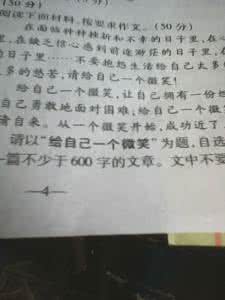 阅读下面材料,按要求作文。(50分)
在面临种种挫折和不幸的日子里,在
里,在缺乏信心感到前途渺茫的日子里,在
的日子里……不要抱怨生活给自己太多
多的愁苦,请给自己一个微笑!
给自己一个微笑,让自己拥有一份
自己勇敢地面对困难;给自己一个微
者自来。从一个微笑开始,成功近了
请以“给自己一个微笑”为题,自选
一篇不少于600字的文章。文中不要
4